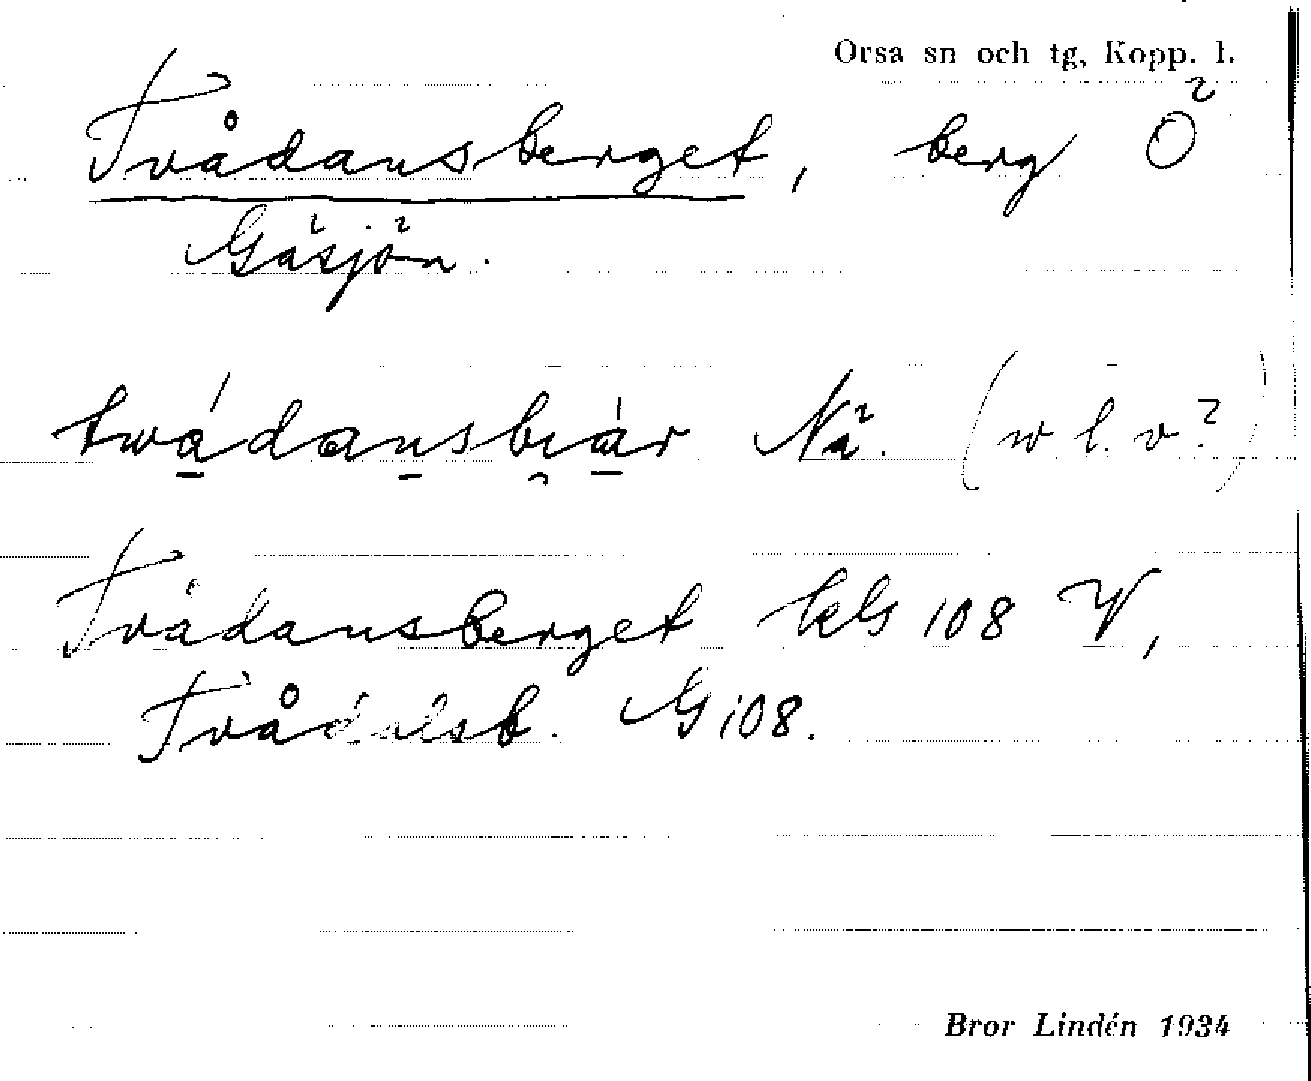 Orsa sn och tg, Kopp. l.
Tvådansberget, berg Ö
Gåsjön.
twádansbiár Nä. (w l. v?)
Tvådansberget kls 108 V,
Tvådalsb. G 108.
Bror Lindén 1934